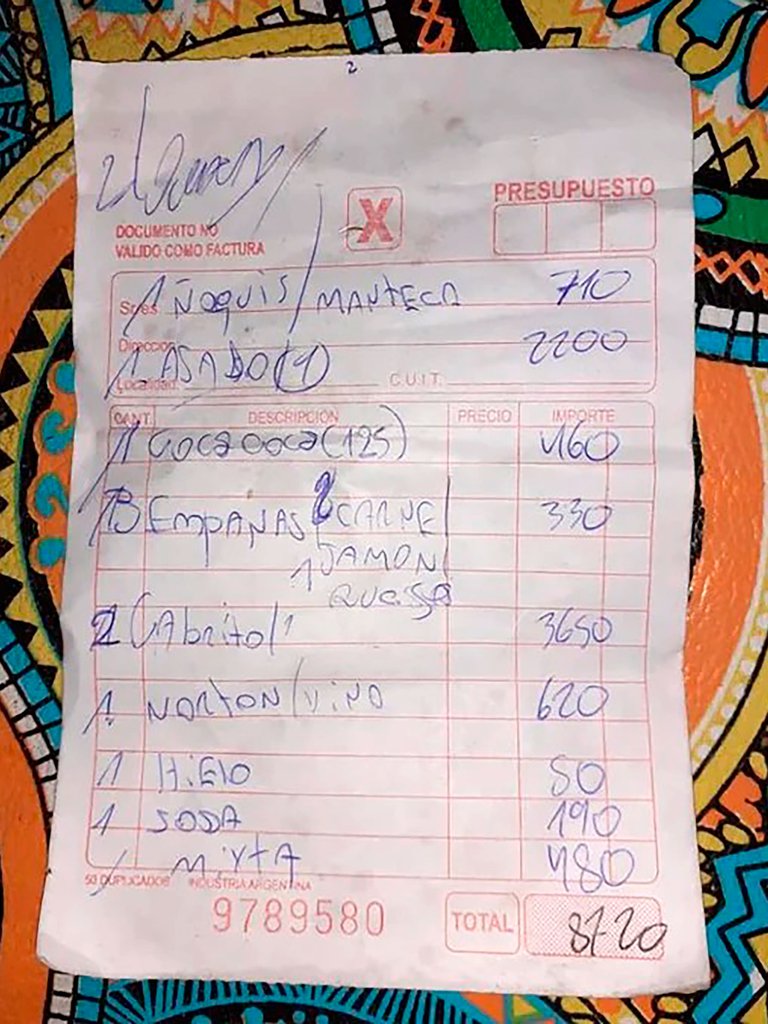 2
PRESUPUESTO
X
DOCUMENTO NO
VALIDO COMO FACTURA
Sres
1 ÑOQUIS / MANTECA 710
Dirección
1 ASADO (1) 2200
Localidad C.U.I.T.
CANT. DESCRIPCIÓN PRECIO IMPORTE
1 Coca coca (125) 460
3 EMPAÑAS 2 CARNE / 330
1 JAMON /
QUESSO
2 CAbrito / 1 3650
1 NORTON / VINO 620
1 HiElo 50
1 SODA 190
/ MixtA 480
50 DUPLICADOS INDUSTRIA ARGENTINA
9789580
TOTAL 8720